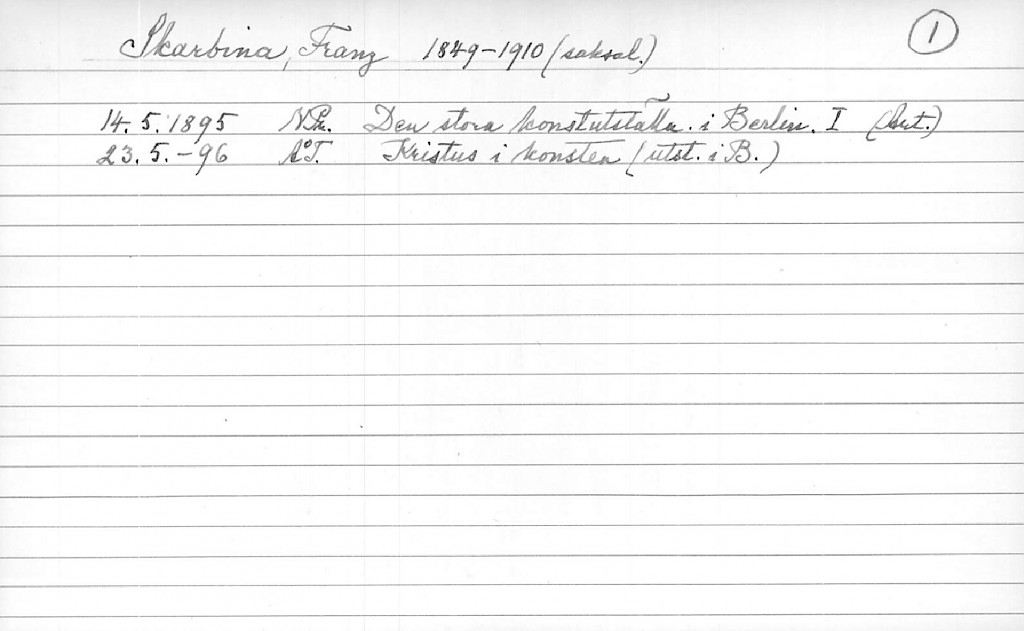 Skarbina, Franz 1849-1910 (saksal.) 1
14. 5. 1895 N.Pr. Den stora konstutställn. i Berlin. I (Art.)
23. 5. -96 Å.T. Kristus i konsten (utst. i B.)